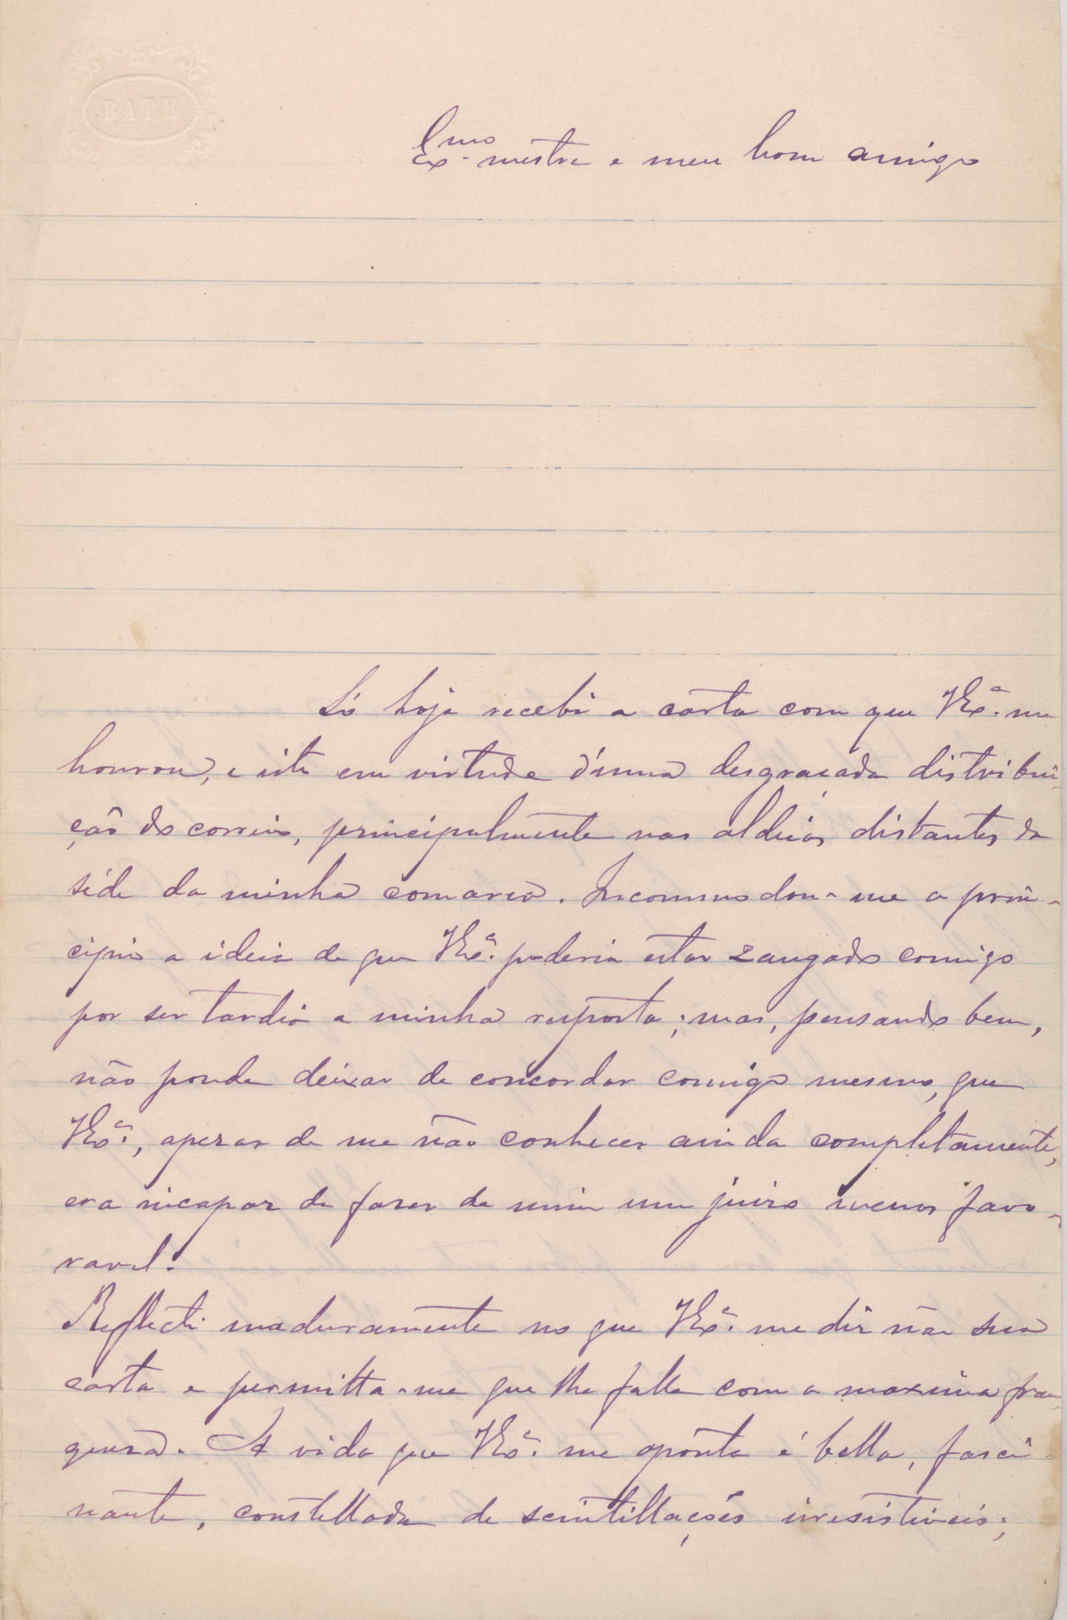 BATH
Exmo mestre e meu bom amigo
Só hoje recebi a carta com que V.Exª. me
honrou, e isto em virtude d'uma desgraçada distribui-
ção do correio, principalmente nas aldeias distantes da
séde da minha comarca. Incommodou-me a prin-
cipio a ideia de que V.Exª. poderia estar zangado comigo
por ser tardia a minha resposta; mas, pensando bem,
não poude deixar de concordar comigo mesmo, que
V.Exª., apezar de me não conhecer ainda completamente,
era incapaz de fazer de mim um juizo menos favo-
ravel.
Reflecti maduramente no que V.Exª. me diz na sua
carta e permitta-me que lhe falle com a maxima fran-
queza. A vida que V.Exª. me aponta é bella, fasci-
nante, constellada de scintillações irresistiveis;